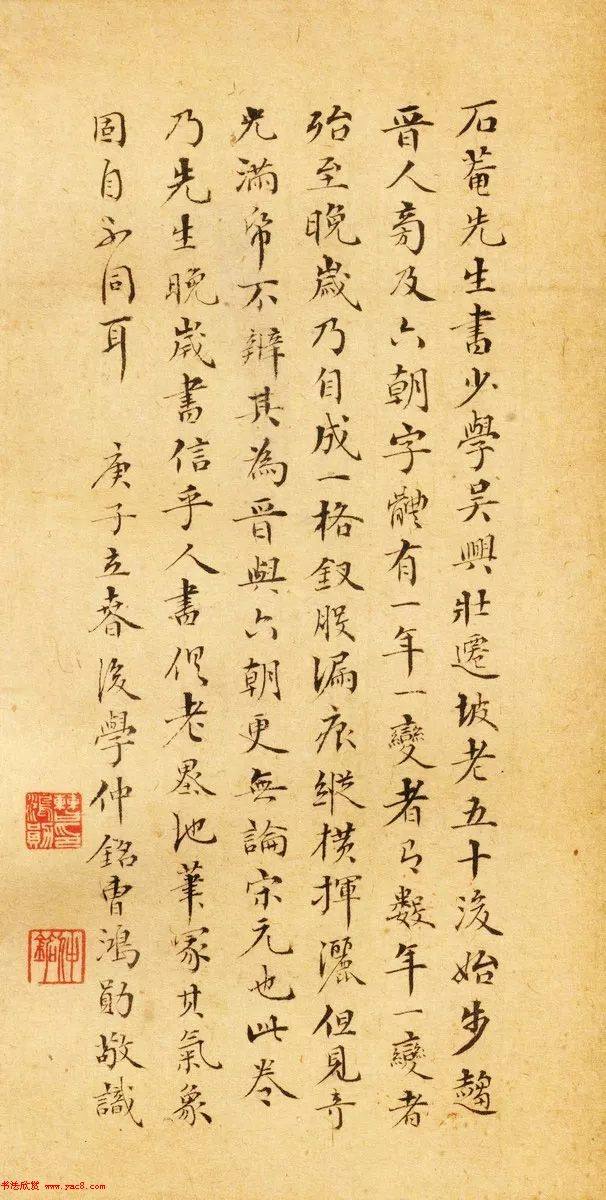 石菴先生書少學吳興壯遷坡老五十後始步趨
晉人旁及六朝字體有一年一變者有數年一變者
殆至晚歲乃自成一格釵股漏痕縱橫揮灑但見奇
光滿帋不辨其為晉與六朝更無論宋元也此卷
乃先生晚歲書信乎人書俱老墨池筆冢其氣象
固自不同耳 庚子立春後學仲銘曹鴻勛敬識
曹鴻勛印
仲銘
书法欣赏 www.yac8.com